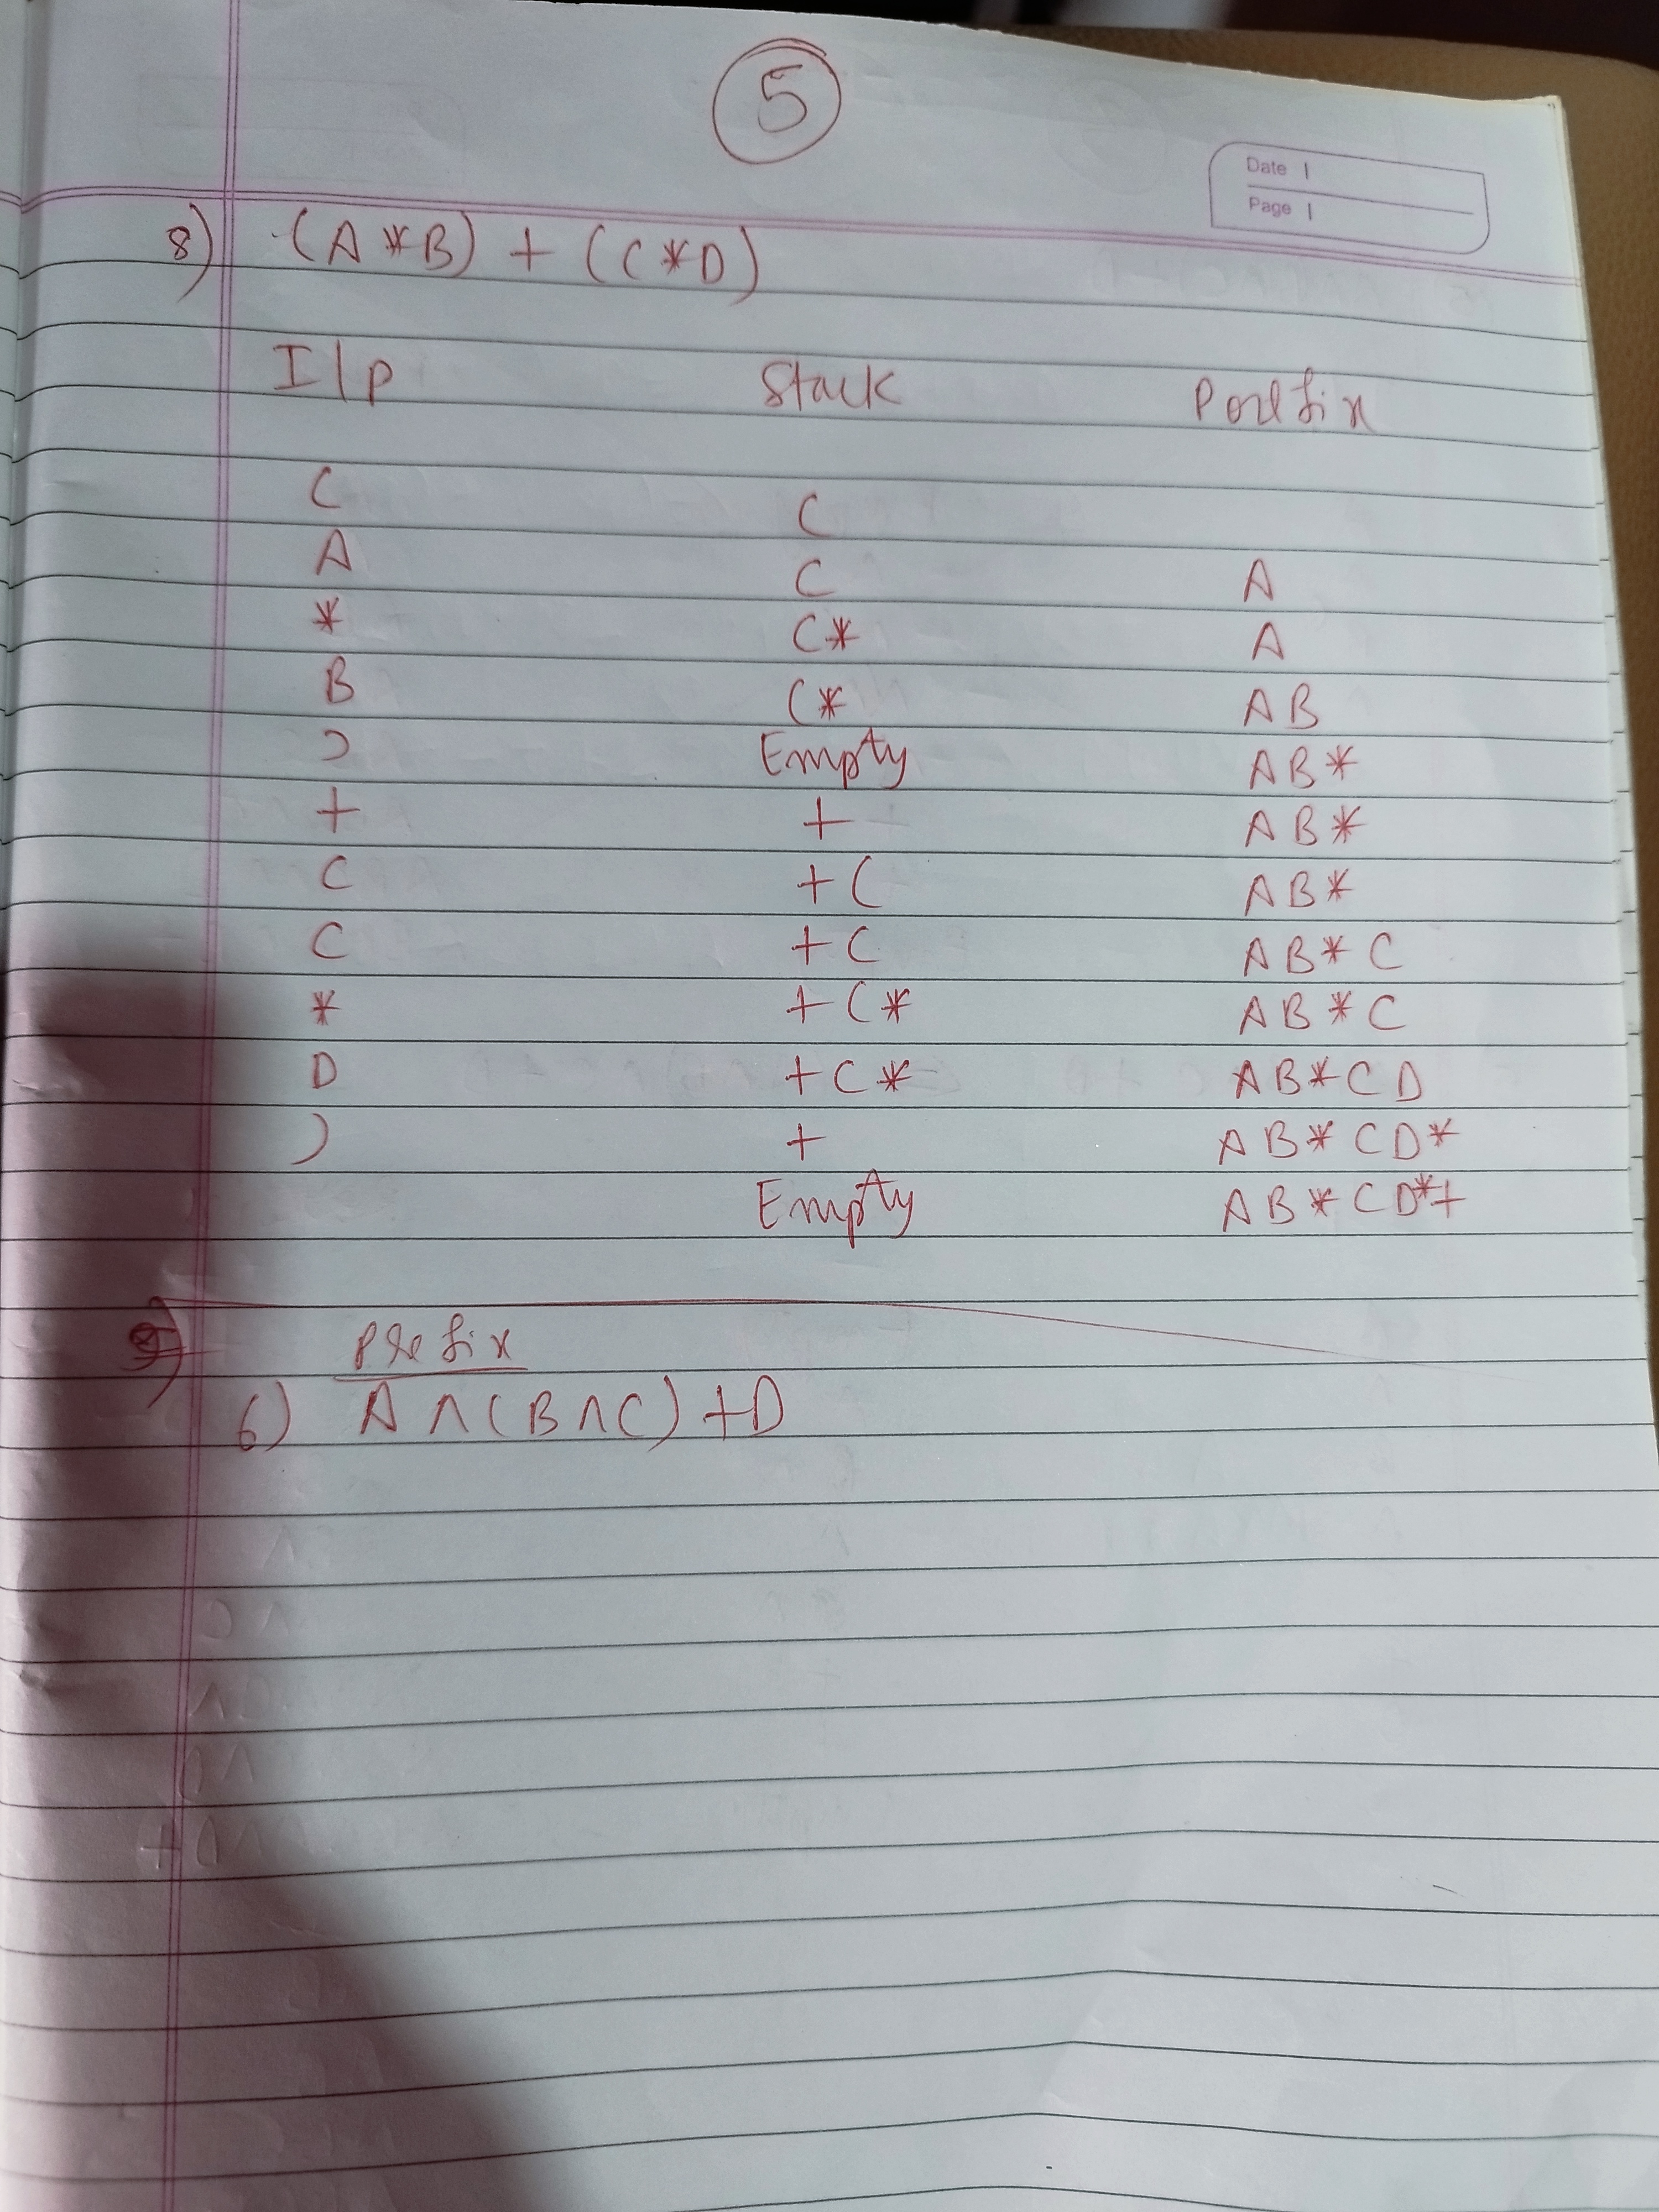 5
Date |
Page |
8) (A*B) + (C*D)
I/p Stack Postfix
( (
A ( A
* (* A
B (* AB
) Empty AB*
+ + AB*
( +( AB*
C +( AB*C
* +(* AB*C
D +(* AB*CD
) + AB*CD*
Empty AB*CD*+
Prefix
6) A ∧ (B ∧ C) + D